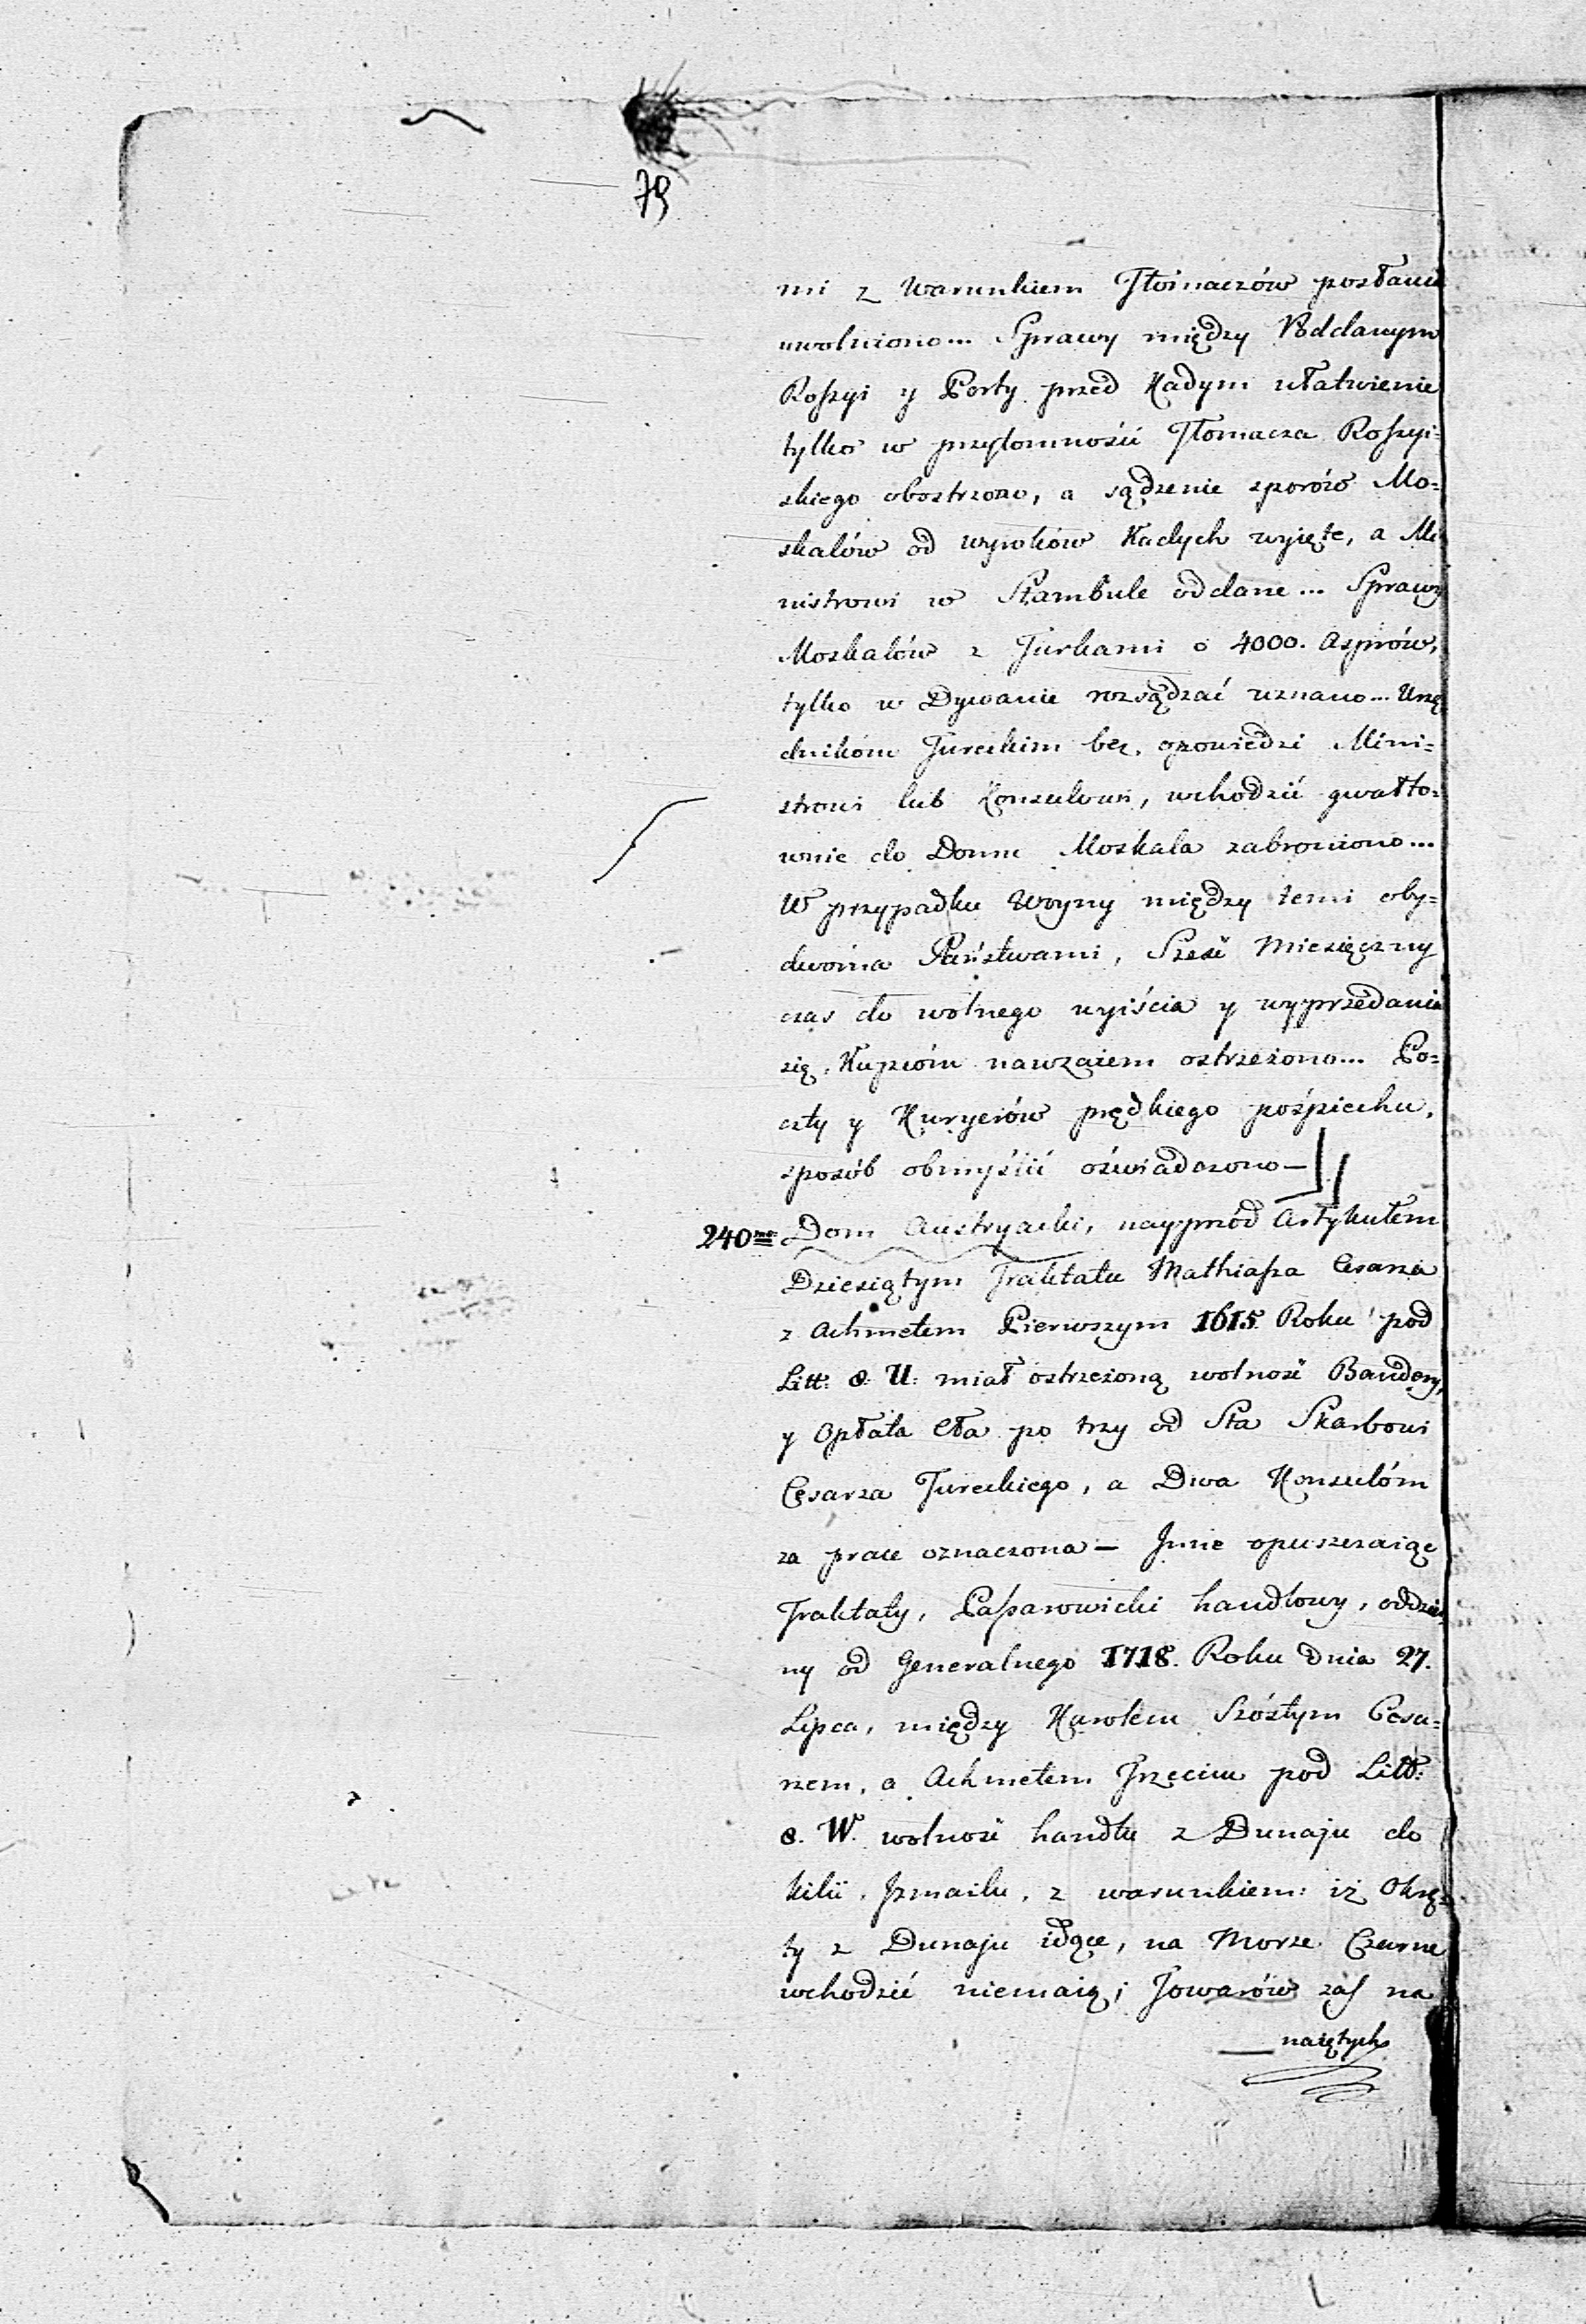 79
mi z Warunkiem Tłómaczów posłanie
uwolniono... Sprawy między Poddanym
Roszyi y Porty przed Kadym ułatwienie
tylko w przytomności Tłomacza Roszyi=
skiego obostrzono, a sądzenie sporów Mo=
skalów od wyroków Kadych wyięte, a Mi
nistrowi w Stambule oddane... Sprawy
Moskalów z Turkami o 4000. Asprów,
tylko w Dywanie rozsądzać uznano... Urzę
dnikóm Tureckim bez opowiedzi Mini=
strowi lub Konsulowi, wchodzić gwałto=
wnie do Domu Moskala zabroniono...
W przypadku Woyny między temi oby=
dwóma Państwami, Sześć Miesięczny
czas do wolnego wyiścia y wyprzedania
się, Kupcóm nawzaiem ostrzeżono... Po=
czty y Kuryerów prędkiego pośpiechu,
sposób obmyślić oświadczono—
240mo Dom Austryacki, nayprzód Artykułem
Dziesiątym Traktatu Mathiasza Cesarza
z Achmetem Pierwszym 1615. Roku pod
Litt: 8. U: miał ostrzeżoną wolność Bandery,
y Opłata Cła po trzy od Sta Skarbowi
Cesarza Tureckiego, a Dwa Konsulóm
za prace oznaczona— Inne opuszczaiąc
Traktaty, Paszarowicki handlowy, oddziel
ny od Generalnego 1718. Roku Dnia 27.
Lipca, między Karolem Szóstym Cesa=
rzem, a Achmetem Trzecim pod Litt:
8. W. wolność handlu z Dunaju do
Kilii, Izmailu, z warunkiem: iż Okrę=
ty z Dunaju idące, na Morze Czarne
wchodzić niemaią; Towarów zaś na
naiętych